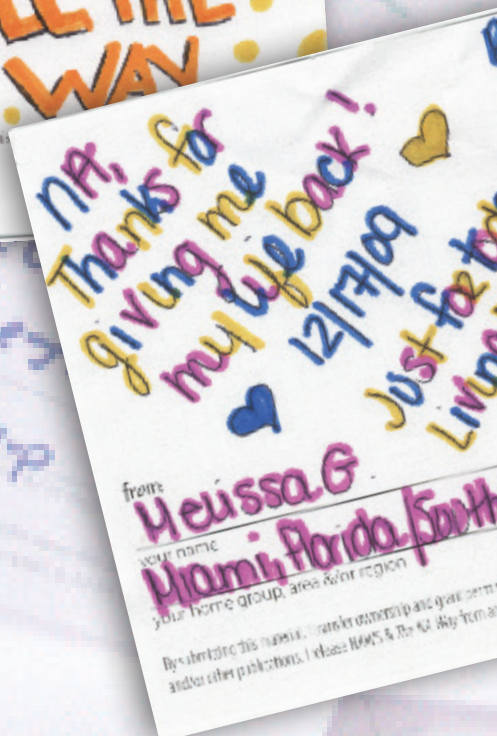 LL THE
WAY
NA,
Thanks for
giving me
my life back!
12/17/09
Just for tod
Living
from:
Melissa G.
your name
Miami, Florida/South
your home group, area &/or region
By submitting this material, I transfer ownership and grant perm
and/or other publications. I release NAWS & The NA Way from a